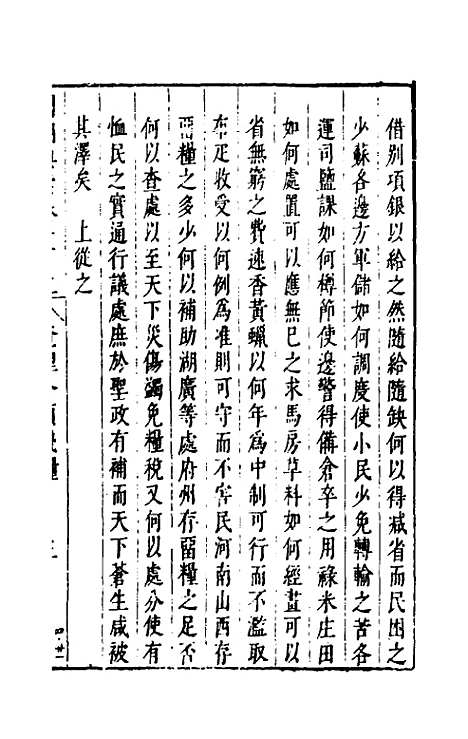 借别項銀以給之然隨給隨缺何以得减省而民困之
少蘇各邊方軍儲如何調度使小民少免轉輸之苦各
運司鹽課如何樽節使邊警得備倉卒之用祿米庄田
如何處置可以應無已之求馬房草料如何經畫可以
省無窮之費速香黃蠟以何年爲中制可行而不濫取
布疋收受以何例爲准則可守而不害民河南山西存
留糧之多少何以補助湖廣等處府州存留糧之足否
何以查處以至天下災傷蠲免糧稅又何以處分使有
恤民之實通行議處庶於聖政有補而天下蒼生咸被
其澤矣　上從之